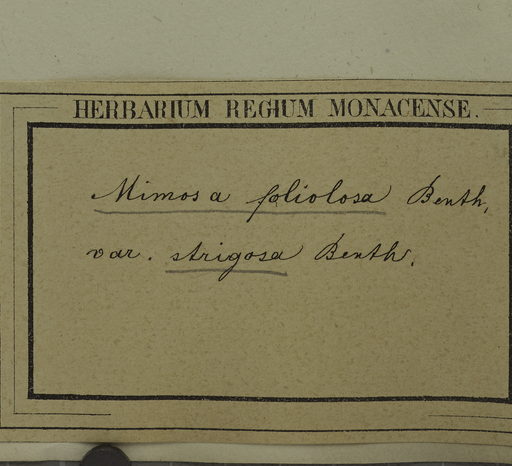 HERBARIUM REGIUM MONACENSE.
Mimosa foliolosa Benth,
var. strigosa Benth.